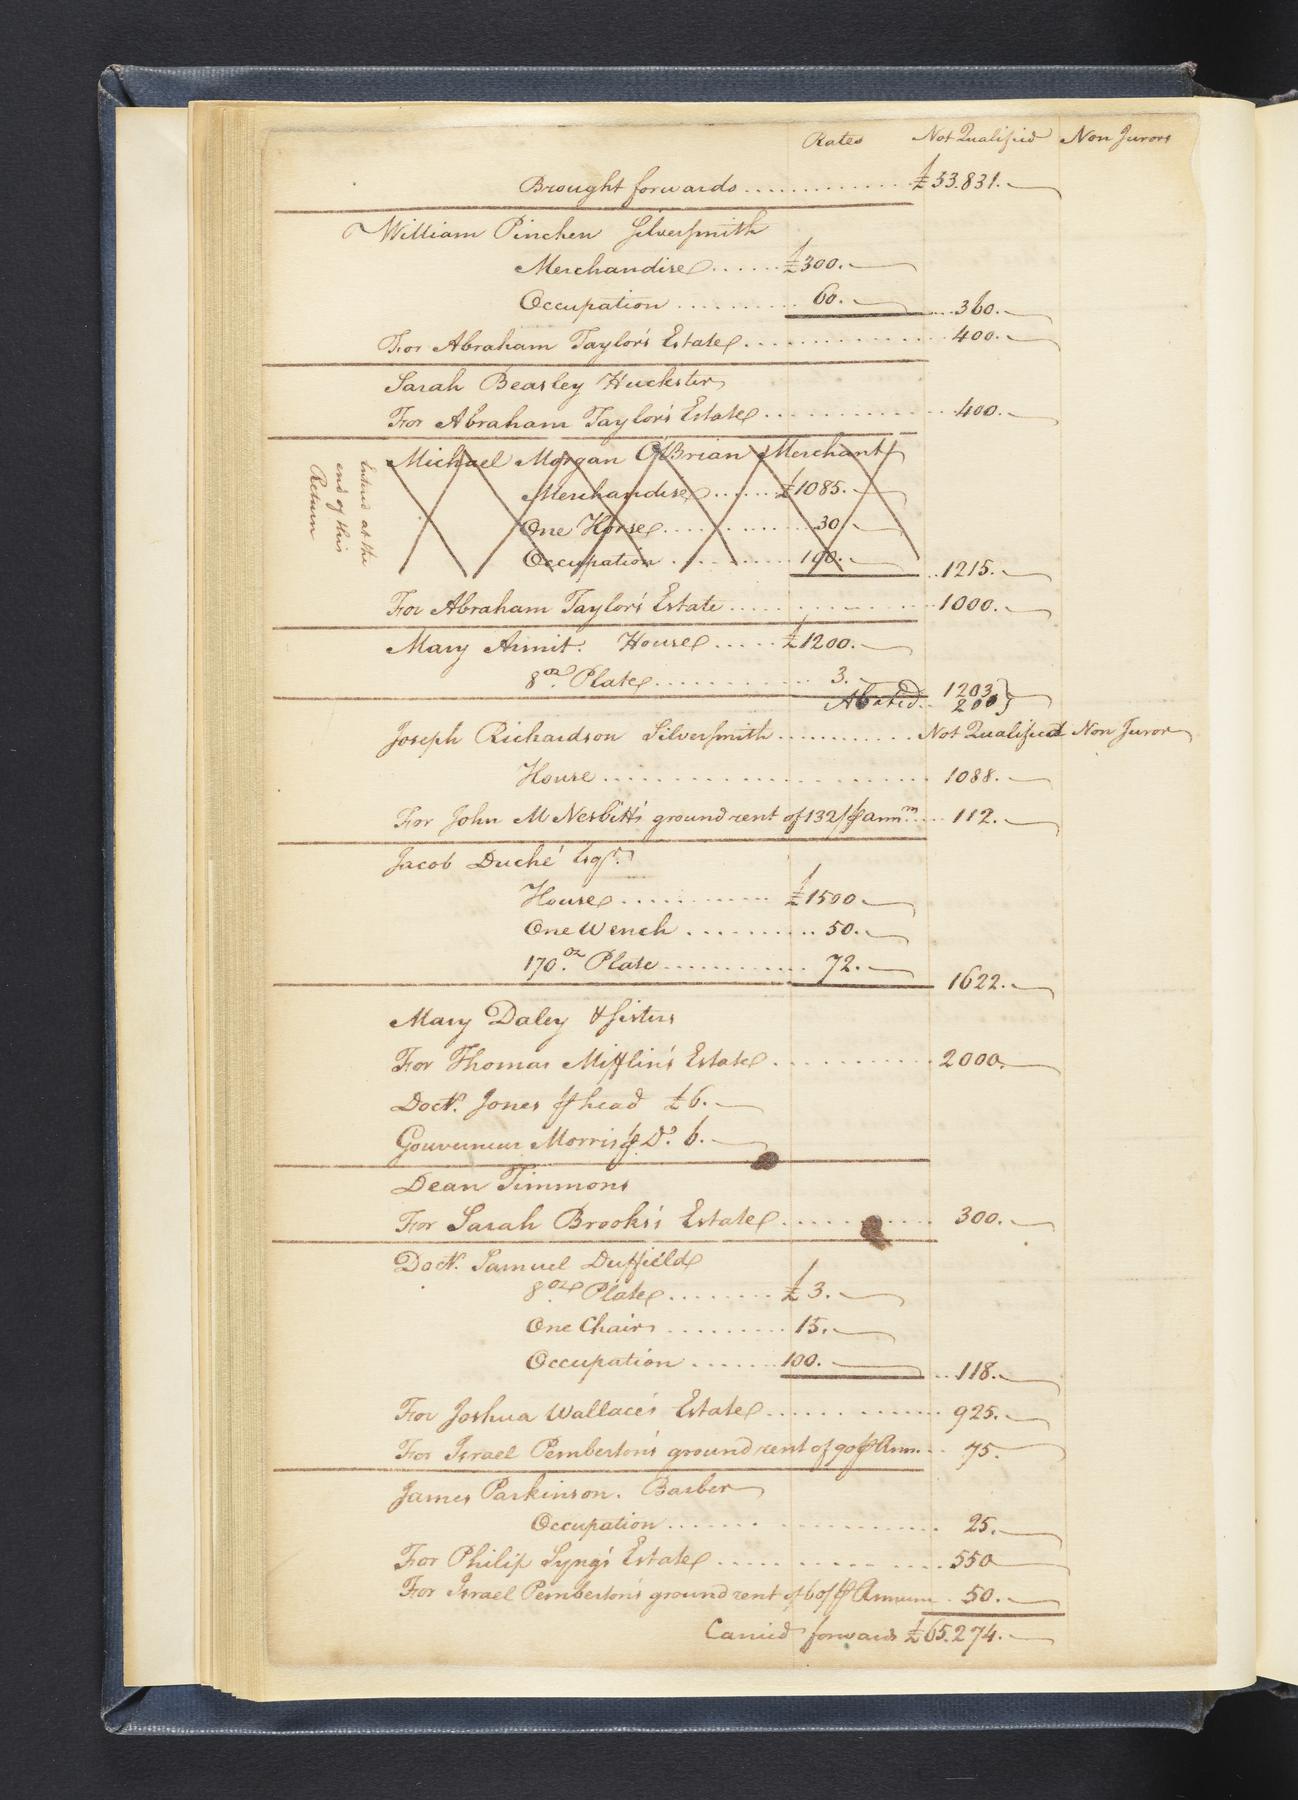 Rates Not Qualified Non Jurors
Brought forwards .............. £53.831.
William Pinchen Silversmith
Merchandise ...... £300.
Occupation .......... 60. .... 360.
For Abraham Taylor's Estate ............... 400.
Sarah Beasley Huckster
For Abraham Taylor's Estate ............... 400.
Entered at the
end of this
Return
Michael Morgan O'Brian Merchant
Merchandise ...... £1085.
One Horse ........... 30
Occupation .......... 100. .. 1215.
For Abraham Taylor's Estate ............... 1000.
Mary Armit. House ..... £1200.
8 oz. Plate ............ 3.
1203
Abated .. 200
Joseph Richardson Silversmith .......... Not Qualified Non Juror
House ........................ 1088.
For John M Nesbitt's ground rent of 132/ ⅌ annm .... 112.
Jacob Duché Esqr.
House ........... £1500
One Wench .......... 50.
170 oz. Plate ............ 72.
1622.
Mary Daley & Sisters
For Thomas Mifflin's Estate ............ 2000.
Doctr. Jones ⅌ head £6.
Gouverneur Morris ⅌ Do. 6.
Dean Timmons
For Sarah Brooks's Estate ............ 300.
Doctr. Samuel Duffield
8 oz. Plate ........ £3.
One Chair ......... 15.
Occupation ...... 100. .. 118.
For Joshua Wallace's Estate .............. 925.
For Israel Pemberton's ground rent of 90/ ⅌ Ann. .. 75.
James Parkinson. Barber
Occupation .................. 25.
For Philip Syng's Estate ................ 550
For Israel Pemberton's ground rent of 60/ ⅌ Annum . 50.
Carried forwards £65.274.